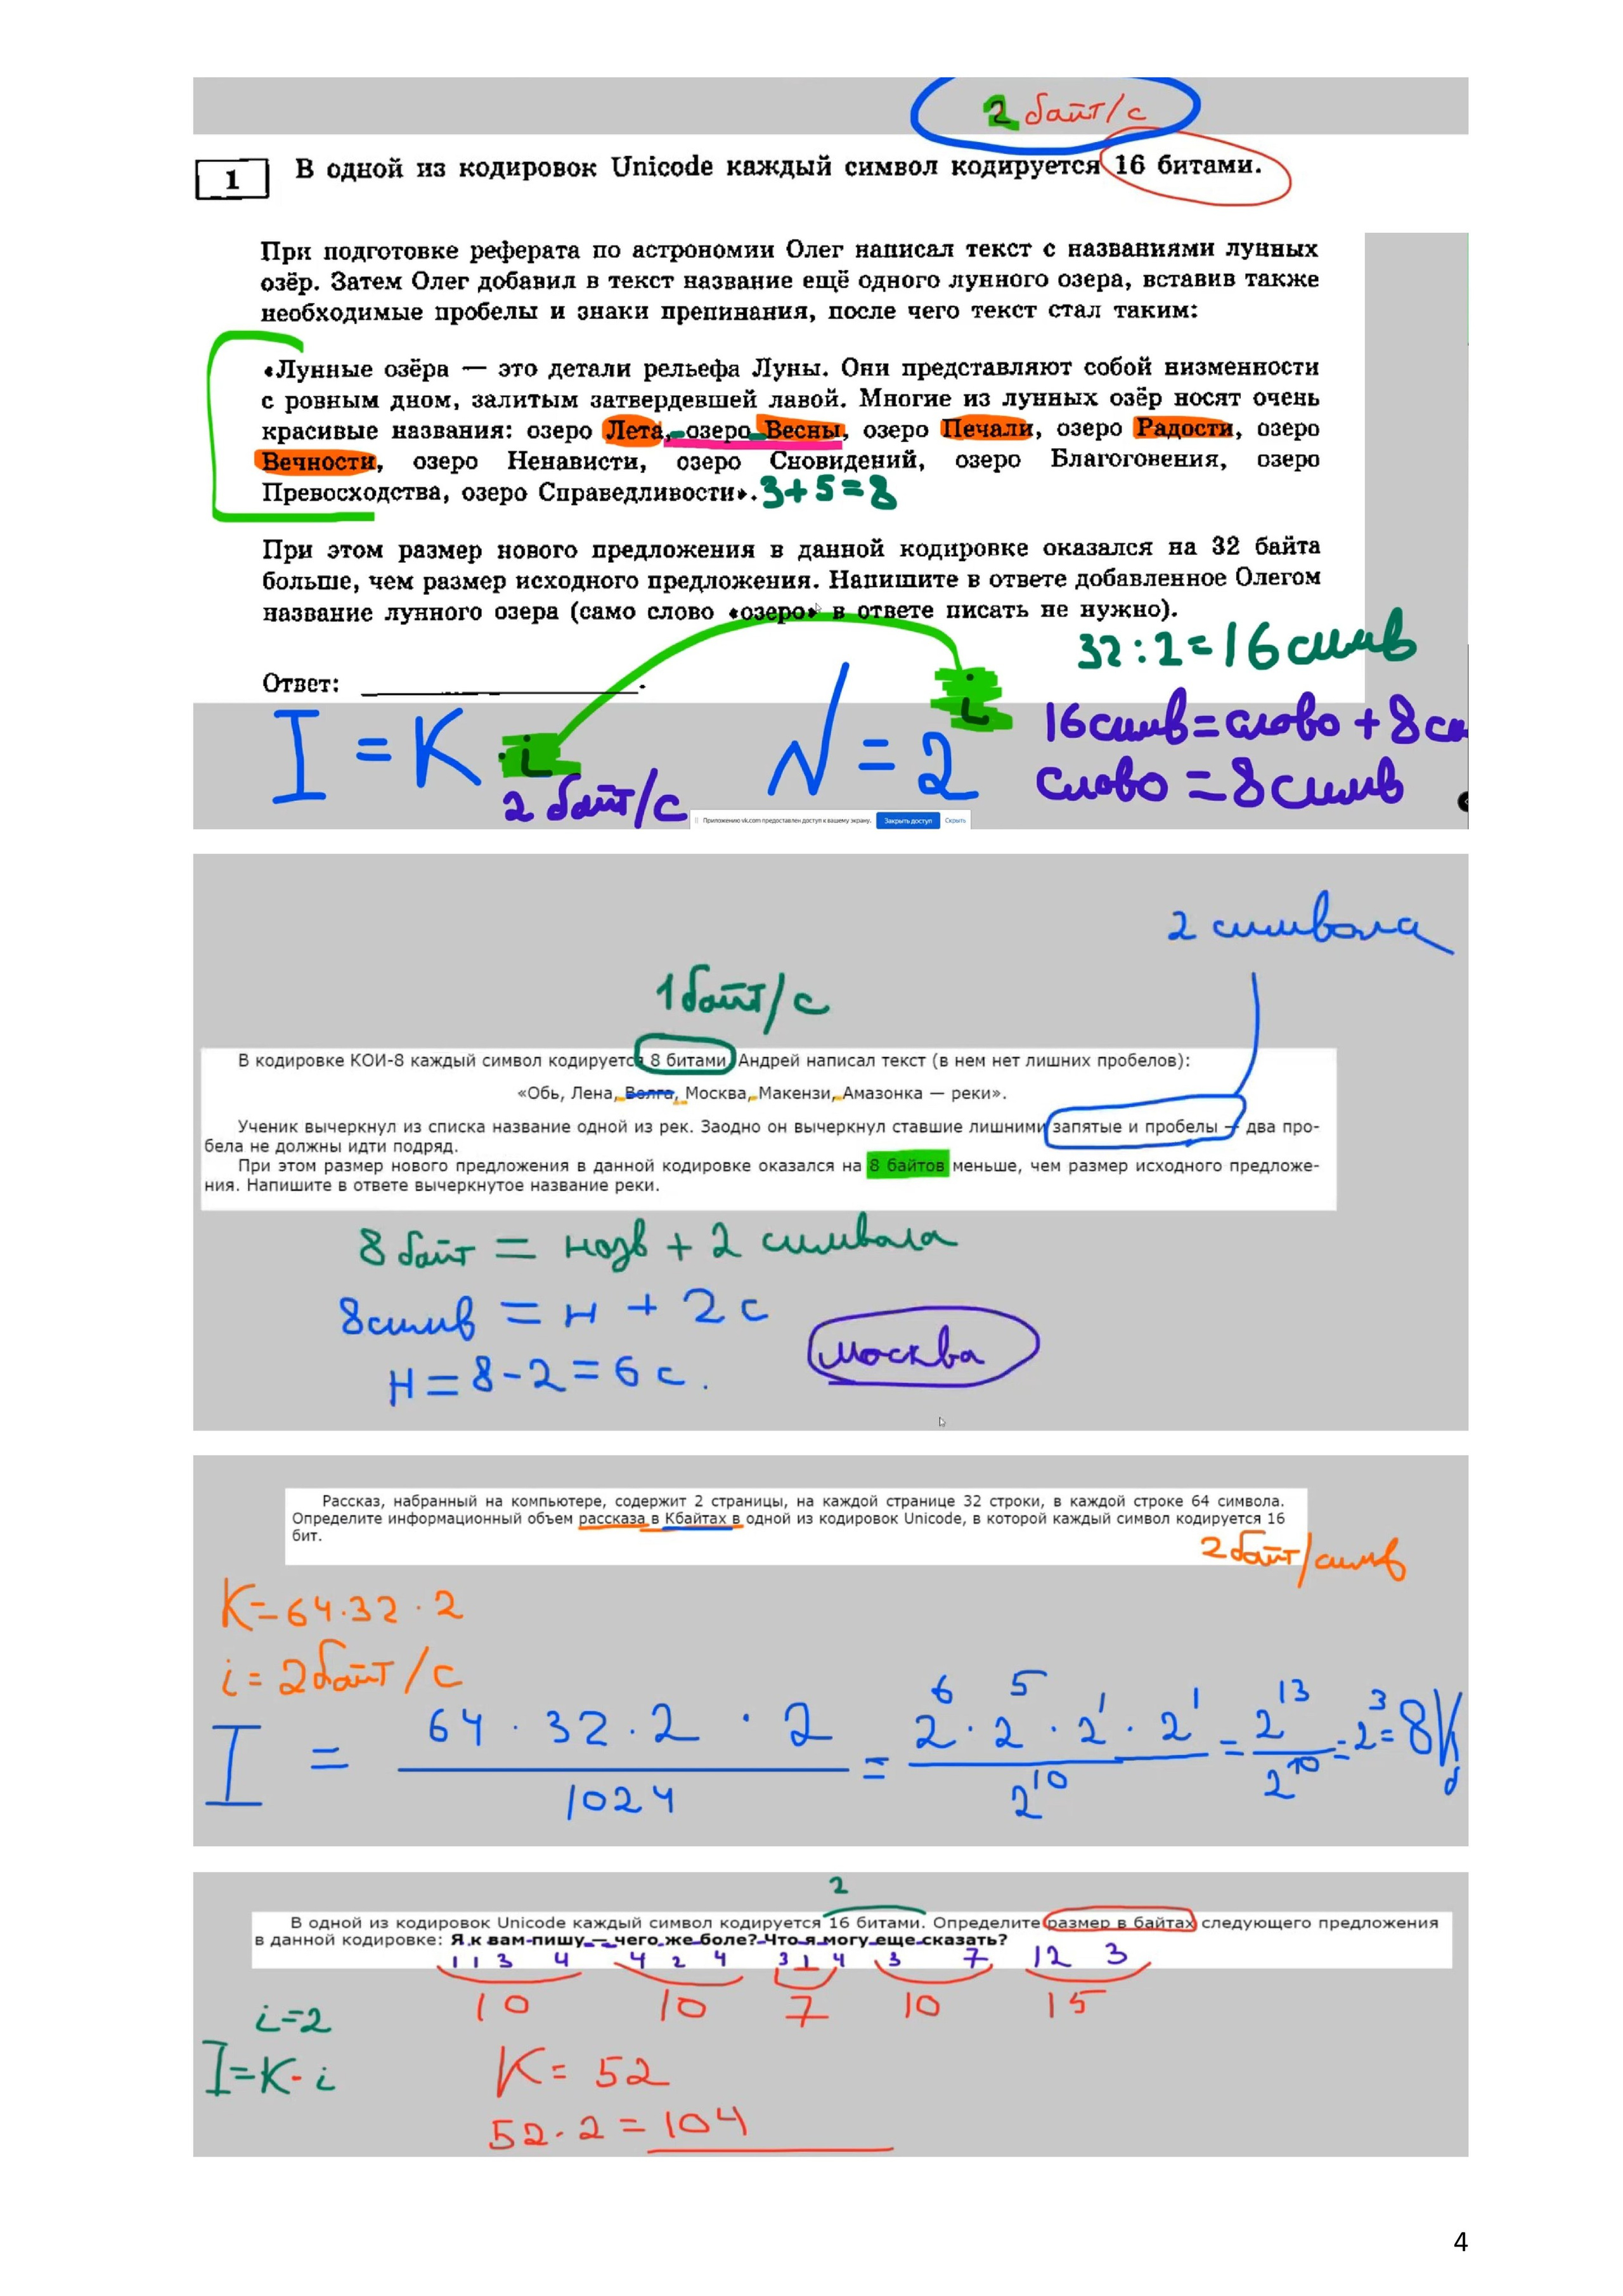 2 байт/с
1
В одной из кодировок Unicode каждый символ кодируется 16 битами.
При подготовке реферата по астрономии Олег написал текст с названиями лунных
озёр. Затем Олег добавил в текст название ещё одного лунного озера, вставив также
необходимые пробелы и знаки препинания, после чего текст стал таким:
«Лунные озёра — это детали рельефа Луны. Они представляют собой низменности
с ровным дном, залитым затвердевшей лавой. Многие из лунных озёр носят очень
красивые названия: озеро Лета, озеро Весны, озеро Печали, озеро Радости, озеро
Вечности, озеро Ненависти, озеро Сновидений, озеро Благоговения, озеро
Превосходства, озеро Справедливости». 3+5=8
При этом размер нового предложения в данной кодировке оказался на 32 байта
больше, чем размер исходного предложения. Напишите в ответе добавленное Олегом
название лунного озера (само слово «озеро» в ответе писать не нужно).
32:2=16 симв
Ответ:
I = K · i
2 байт/с
N = 2 i
16 симв = слово + 8 си
слово = 8 симв
Приложению vk.com предоставлен доступ к вашему экрану. Закрыть доступ Скрыть
2 символа
1 байт/с
В кодировке КОИ-8 каждый символ кодируется 8 битами. Андрей написал текст (в нем нет лишних пробелов):
«Обь, Лена, Волга, Москва, Макензи, Амазонка — реки».
Ученик вычеркнул из списка название одной из рек. Заодно он вычеркнул ставшие лишними запятые и пробелы — два про-
бела не должны идти подряд.
При этом размер нового предложения в данной кодировке оказался на 8 байтов меньше, чем размер исходного предложе-
ния. Напишите в ответе вычеркнутое название реки.
8 байт = назв + 2 символа
8 симв = н + 2 с
н = 8 - 2 = 6 с.
москва
Рассказ, набранный на компьютере, содержит 2 страницы, на каждой странице 32 строки, в каждой строке 64 символа.
Определите информационный объем рассказа в Кбайтах в одной из кодировок Unicode, в которой каждый символ кодируется 16
бит.
2 байт/симв
K = 64·32·2
i = 2 байт/с
I = 64·32·2·2 / 1024 = 2^6·2^5·2^1·2^1 / 2^10 = 2^13 / 2^10 = 2^3 = 8 Кб
2
В одной из кодировок Unicode каждый символ кодируется 16 битами. Определите размер в байтах следующего предложения
в данной кодировке: Я к вам пишу — чего же боле? Что я могу еще сказать?
1 1 3 4 4 2 4 3 1 4 3 7 12 3
10 10 7 10 15
i=2
I=K·i
K = 52
52·2 = 104
4